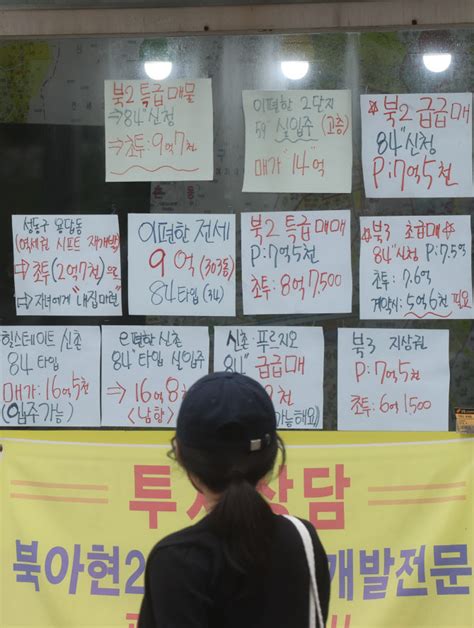 북2 특급 매물
⇒84" 신청
⇒초투: 9억 7천
이편한 2단지
59" 실입주 (고층)
매가 "14" 억
북2 급급매
84" 신청
P: 7억 5천
성동구 용답동
(역세권 시프트 재개발)
⇒초투 (2억 7천)으로
⇒자녀에게 "내집마련"
이편한 전세
9억 (303동)
84타입 (34)
북2 특급 매매
P: 7억 5천
초투: 8억 7,500
북3 초급매
84" 신청 P: 7.5억
초투: 7.6억
계약시: 5억 6천 필요
힐스테이트 신촌
84 타입
매가: 16억 5천
(입주가능)
e편한 신촌
84" 타입 실입주
⇒ 16억 8천
<남향>
신촌 푸르지오
84" 급급매
북3 지상권
P: 7억 5천
초투: 6억 1500
투자상담
북아현2
개발전문